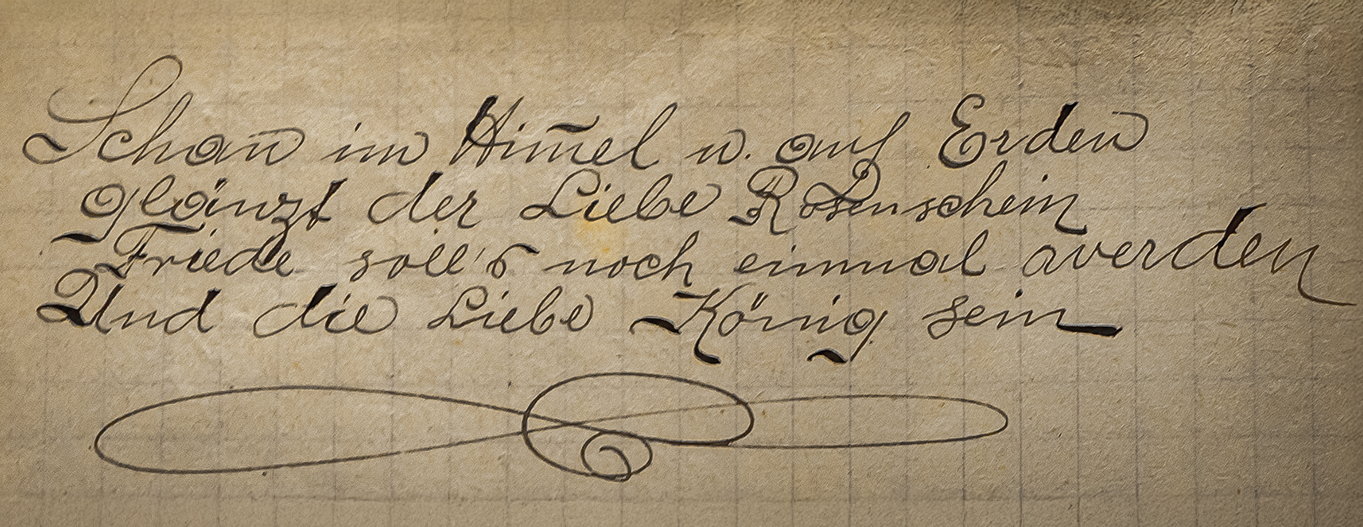 Schau im Him̄el u. auf Erden
glänzt der Liebe Rosenschein
Friede soll's noch einmal werden
Und die Liebe König sein